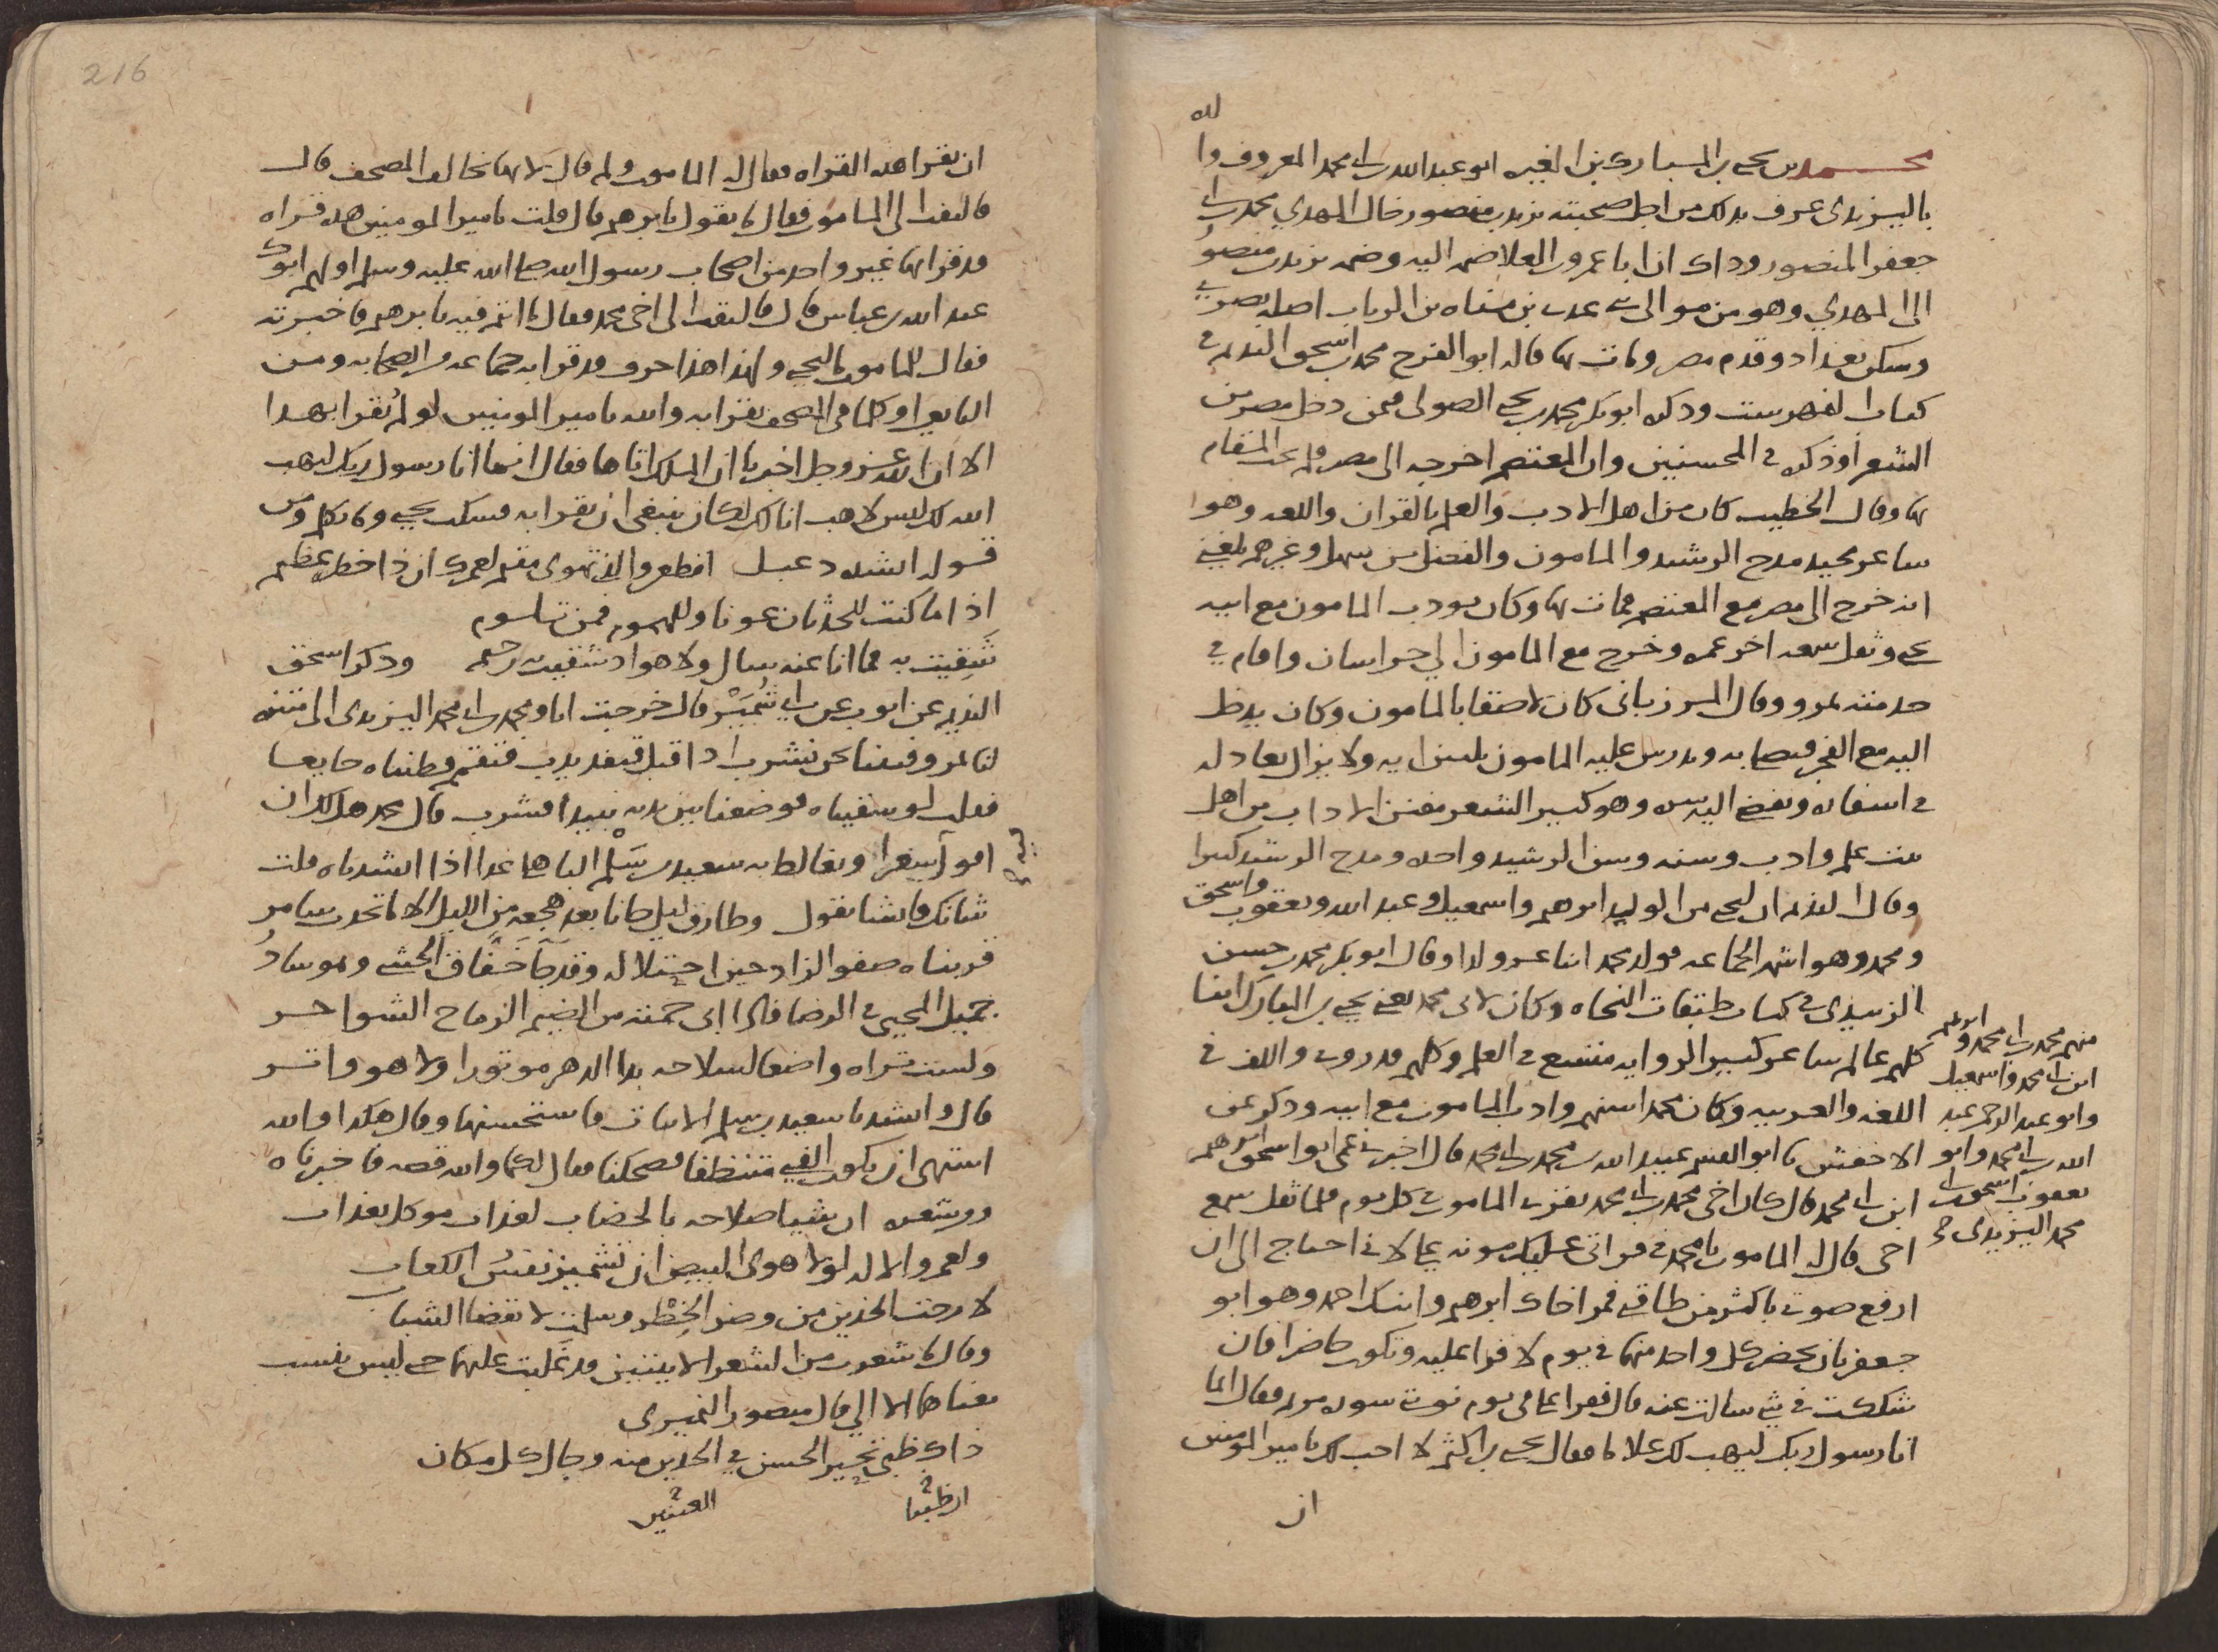 محمد بن يحيى بن المبارك بن المغيره ابو عبد الله بن ابي محمد المعروف والده
باليزيدى عرف بذلك من اجل صحبته يزيد بن منصور خال المهدي محمد بن ابى
جعفر المنصور وذاك ان ابا عمرو بن العلا ضمه اليه وضمه يزيد بن منصور
الى المهدي وهو من موالى بنى عدى بن مناه بن الرباب اصله بصرى
وسكن بغداد وقدم مصر ومات بها قاله ابو الفرج محمد بن اسحق النديم فى
كتاب الفهرست وذكره ابو بكر محمد بن يحيى الصولى فيمن دخل مصر من
الشعرا وذكره فى المحسنين وان المعتصم اخرجه الى مصر ولم يحب المقام
بها وقال الخطيب كان من اهل الادب والعلم بالقران واللغه وهو
شاعر مجيد مدح الرشيد والمامون والفضل بن سهل وغيرهم بلغنى
انه خرج الى مصر مع المعتصم فمات بها وكان يودب المامون مع ابيه
يحيى وثقل سمعه اخر عمره وخرج مع المامون الى خراسان واقام فى
خدمته بمرو وقال المرزبانى كان لاصقا بالمامون وكان يدخل
اليه مع الفجر فيصلى به ويدرس عليه المامون ثلثين ايه ولا يزال يعادله
فى اسفاره ويفضى اليه بسره وهو كثير الشعر مفنن الاداب من اهل
بيت علم وادب وسنه وسن الرشيد واحده ومدح الرشيد كثيرا
وقال النديم ان ليحيى من الولد ابرهيم واسمعيل وعبد الله ويعقوب واسحق
ومحمد وهو اشهر الجماعه فولد محمد اثنا عشر ولدا وقال ابو بكر محمد بن حسن
الزبيدى فى كتاب طبقات النحاه وكان لابى محمد يعنى يحيى بن المبارك ابنا
كلهم عالم شاعر كثير الروايه متسع فى العلم وكلهم قد روى والف فى
اللغه والعربيه وكان محمد اسنهم وادب المامون مع ابيه وذكر عن
الاخفش نا ابو القسم عبيد الله بن محمد بن ابى محمد قال اخبرنى عمى ابو اسحق ابرهيم
ابن ابى محمد قال كان اخى محمد بن ابى محمد يقرى المامون كل يوم فلما ثقل سمع
اخى قال له المامون يا محمد فى قراتى عليك مونه على لانى احتاج الى ان
ارفع صوتى باكثر من طاقتى فمر اخاك ابرهيم وابنك احمد وهو ابو
جعفر بان يحضر كل واحد منهما فى يوم لاقرا عليه وتكون حاضرا فان
شككت فى شى سالتك عنه قال فقرا على فى يوم نوبتى سوره مريم فقال انما
انا رسول ربك ليهب لك غلاما فقال يحيى بن اكثم لا احب لك يا امير المومنين
ان
منهم محمد بن ابى محمد وابرهيم
ابن ابى محمد واسمعيل
وابو عبد الرحمن عبد
الله بن ابى محمد وابو
يعقوب اسحق بن ابى
محمد اليزيدى
216
ان تقرا هذه القراه فقال له المامون ولم قال لانها تخالف المصحف قال
فالتفت الى المامون فقال ما تقول يا ابرهيم قال قلت يا امير المومنين هذه قراه
قد قرا بها غير واحد من اصحاب رسول الله صلى الله عليه وسلم اولهم ابوك
عبد الله بن عباس قال فالتفت الى اخى محمد فقال ما انتم فيه يا ابرهيم فاخبرته
فقال للمامون ما ليحيى ولهذا هذا حرف قد قرا به جماعه من الصحابه ومن
التابعين او كلما فى المصحف يقرا به والله يا امير المومنين لو لم يقرا بهذا
الا ان الله عز وجل اخبرنا ان الملك اتاها فقال انما انا رسول ربك ليهب
الله لك ليس لاهب انا لك لكان ينبغى ان يقرا به فسكت يحيى وما تكلم ومن
قوله انشده دعبل اتظعن والذى تهوى مقيم لعمرك ان ذا خطر عظيم
اذا ما كنت للحدثان عونا وللهموم فمن تلوم
شقيت به فما انا عنه سال ولا هو اذ شقيت به رحيم وذكر اسحق
النديم عن ايوب عن ابى شمير قال خرجت انا ومحمد بن ابى محمد اليزيدى الى متنزه
لنا بمرو فبينا نحن نشرب اذا اقبل قنفذ يدب فتقنع وظنناه جايعا
فقلت لو سقيناه فوضعنا بين يديه نبيذا فشرب قال محمد هل لك ان
تقول شعرا ونغالط به سعيد بن سلم الباهلى غدا اذا انشدناه قلت
شانك فانشا يقول وطارق ليل جانا بعد هجعه من الليل الا ما تحدث سامر
قريناه صفو الزاد حين راته وقد جا خفاق الحشى وهو سادر
جميل المحيى فى الرضا فاذا ابى حمته من الضيم الرماح الشواجر
ولست تراه واضعا لسلاحه يد الدهر موتورا ولا هو واتر
قال وانشدنا سعيد بن سلم الابيات فاستحسنها وقال هكذا والله
اشتهى ان يكون الفتى متيقظا فضحكنا فقال لكما والله قصه فاخبرناه
ومن شعره ان شيبا صلاحه بالخضاب لعذاب موكل بعذاب
ولعمر الاله لولا هوى البيض ان تشمئز نفس الكعاب
لارحت الخدين من وضر الخطر وسلمت لانقضا الشباب
وقال ما شعرت من الشعر الا بيتين قد غلبت عليهما حتى ليس ينسب
معناهما الا الى قال منصور النميرى
ذاك ظبى تحير الحسن فى الخدين منه وجال كل مكان